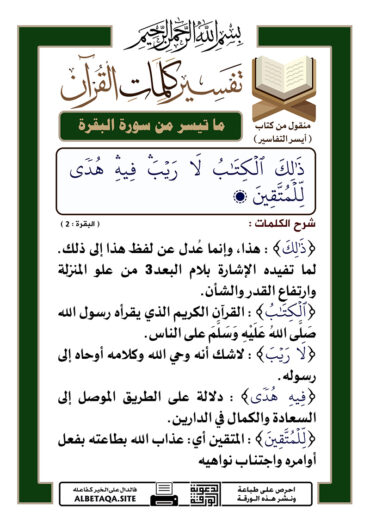 بسم الله الرحمن الرحيم
تفسير كلمات القرآن
ما تيسر من سورة البقرة
منقول من كتاب
( أيسر التفاسير )
ذَٰلِكَ ٱلْكِتَٰبُ لَا رَيْبَ ۛ فِيهِ ۛ هُدًى
لِّلْمُتَّقِينَ
شرح الكلمات :
( البقرة : 2 )
﴿ذَٰلِكَ﴾ : هذا، وإنما عُدل عن لفظ هذا إلى ذلك.
لما تفيده الإشارة بلام البعد3 من علو المنزلة
وارتفاع القدر والشأن.
﴿ٱلْكِتَٰبُ﴾ : القرآن الكريم الذي يقرأه رسول الله
صَلَّى اللهُ عَلَيْهِ وَسَلَّمَ على الناس.
﴿لَا رَيْبَ﴾ : لاشك أنه وحي الله وكلامه أوحاه إلى
رسوله.
﴿فِيهِ هُدًى﴾ : دلالة على الطريق الموصل إلى
السعادة والكمال في الدارين.
﴿لِّلْمُتَّقِينَ﴾ : المتقين أي: عذاب الله بطاعته بفعل
أوامره واجتناب نواهيه
احرص على طباعة
ونشر هذه الورقة
الدعوية
الورقة
فالدال على الخير كفاعله
ALBETAQA.SITE